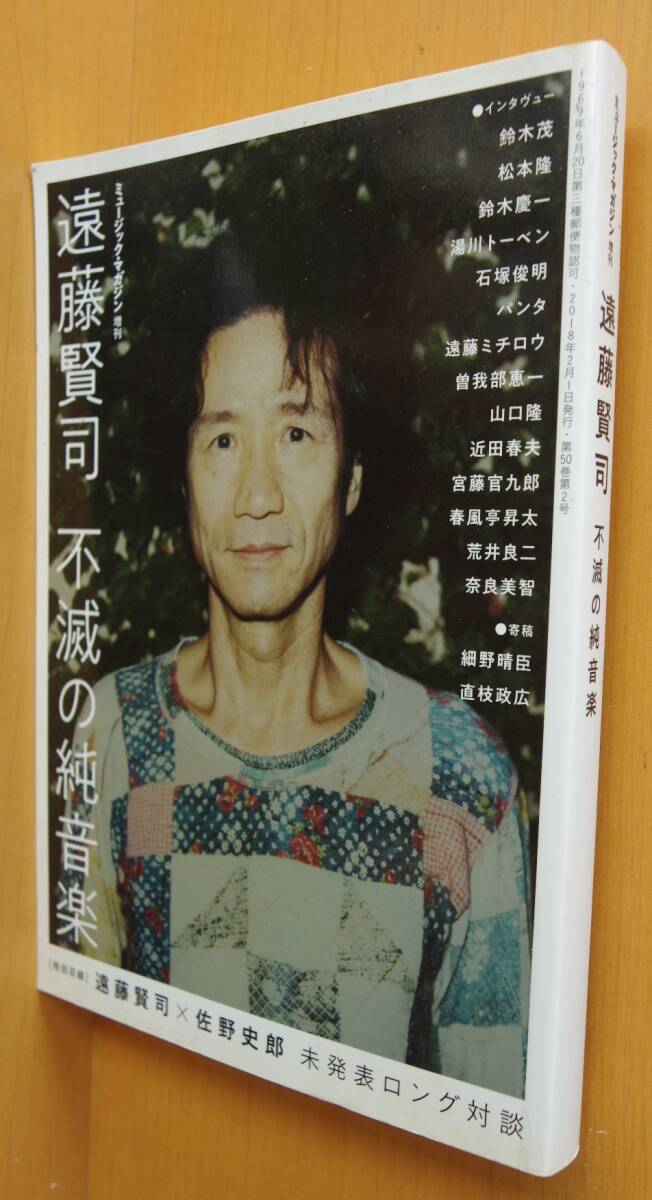 ミュージック・マガジン 増刊
遠藤賢司 不滅の純音楽
●インタヴュー
鈴木茂
松本隆
鈴木慶一
湯川トーベン
石塚俊明
パンタ
遠藤ミチロウ
曽我部恵一
山口隆
近田春夫
宮藤官九郎
春風亭昇太
荒井良二
奈良美智
●寄稿
細野晴臣
直枝政広
[特別収録] 遠藤賢司×佐野史郎 未発表ロング対談
1969年6月20日第三種郵便物認可・2018年2月1日発行・第50巻第2号
ミュージック・マガジン 増刊
遠藤賢司 不滅の純音楽